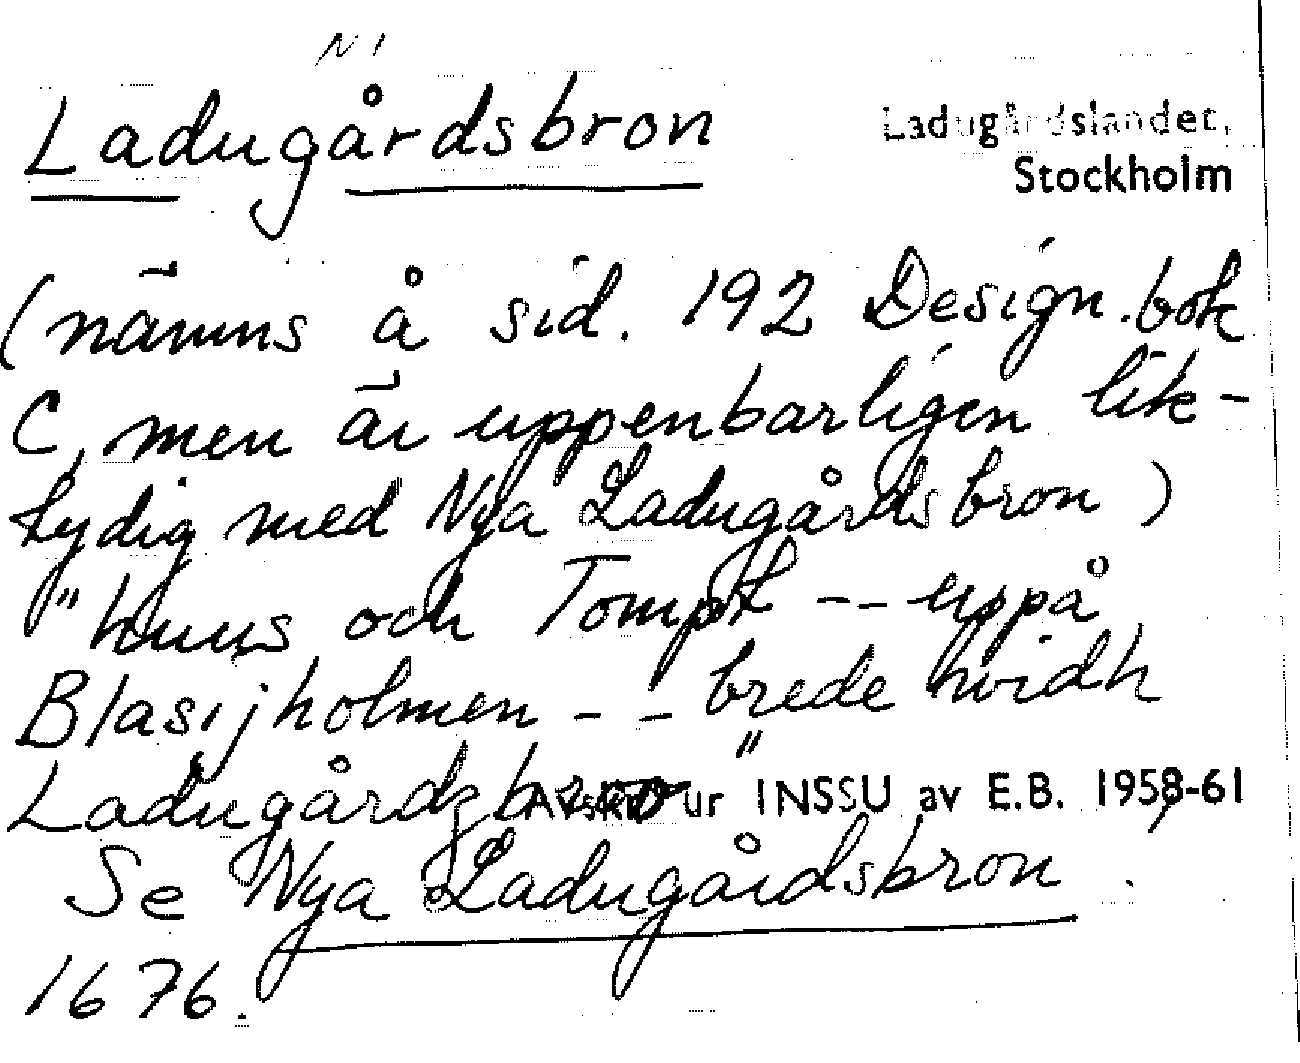 N 1
Ladugårdsbron
Ladugårdslandet,
Stockholm
(nämns å sid. 192 Design.bok
C, men är uppenbarligen lik-
tydig med Nya Ladugårdsbron)
"huus och Tompt -- uppå
Blasijholmen -- brede hvidh
Ladugårdzbroo"
Avskr ur INSSU av E.B. 1959-61
Se Nya Ladugårdsbron.
1676.